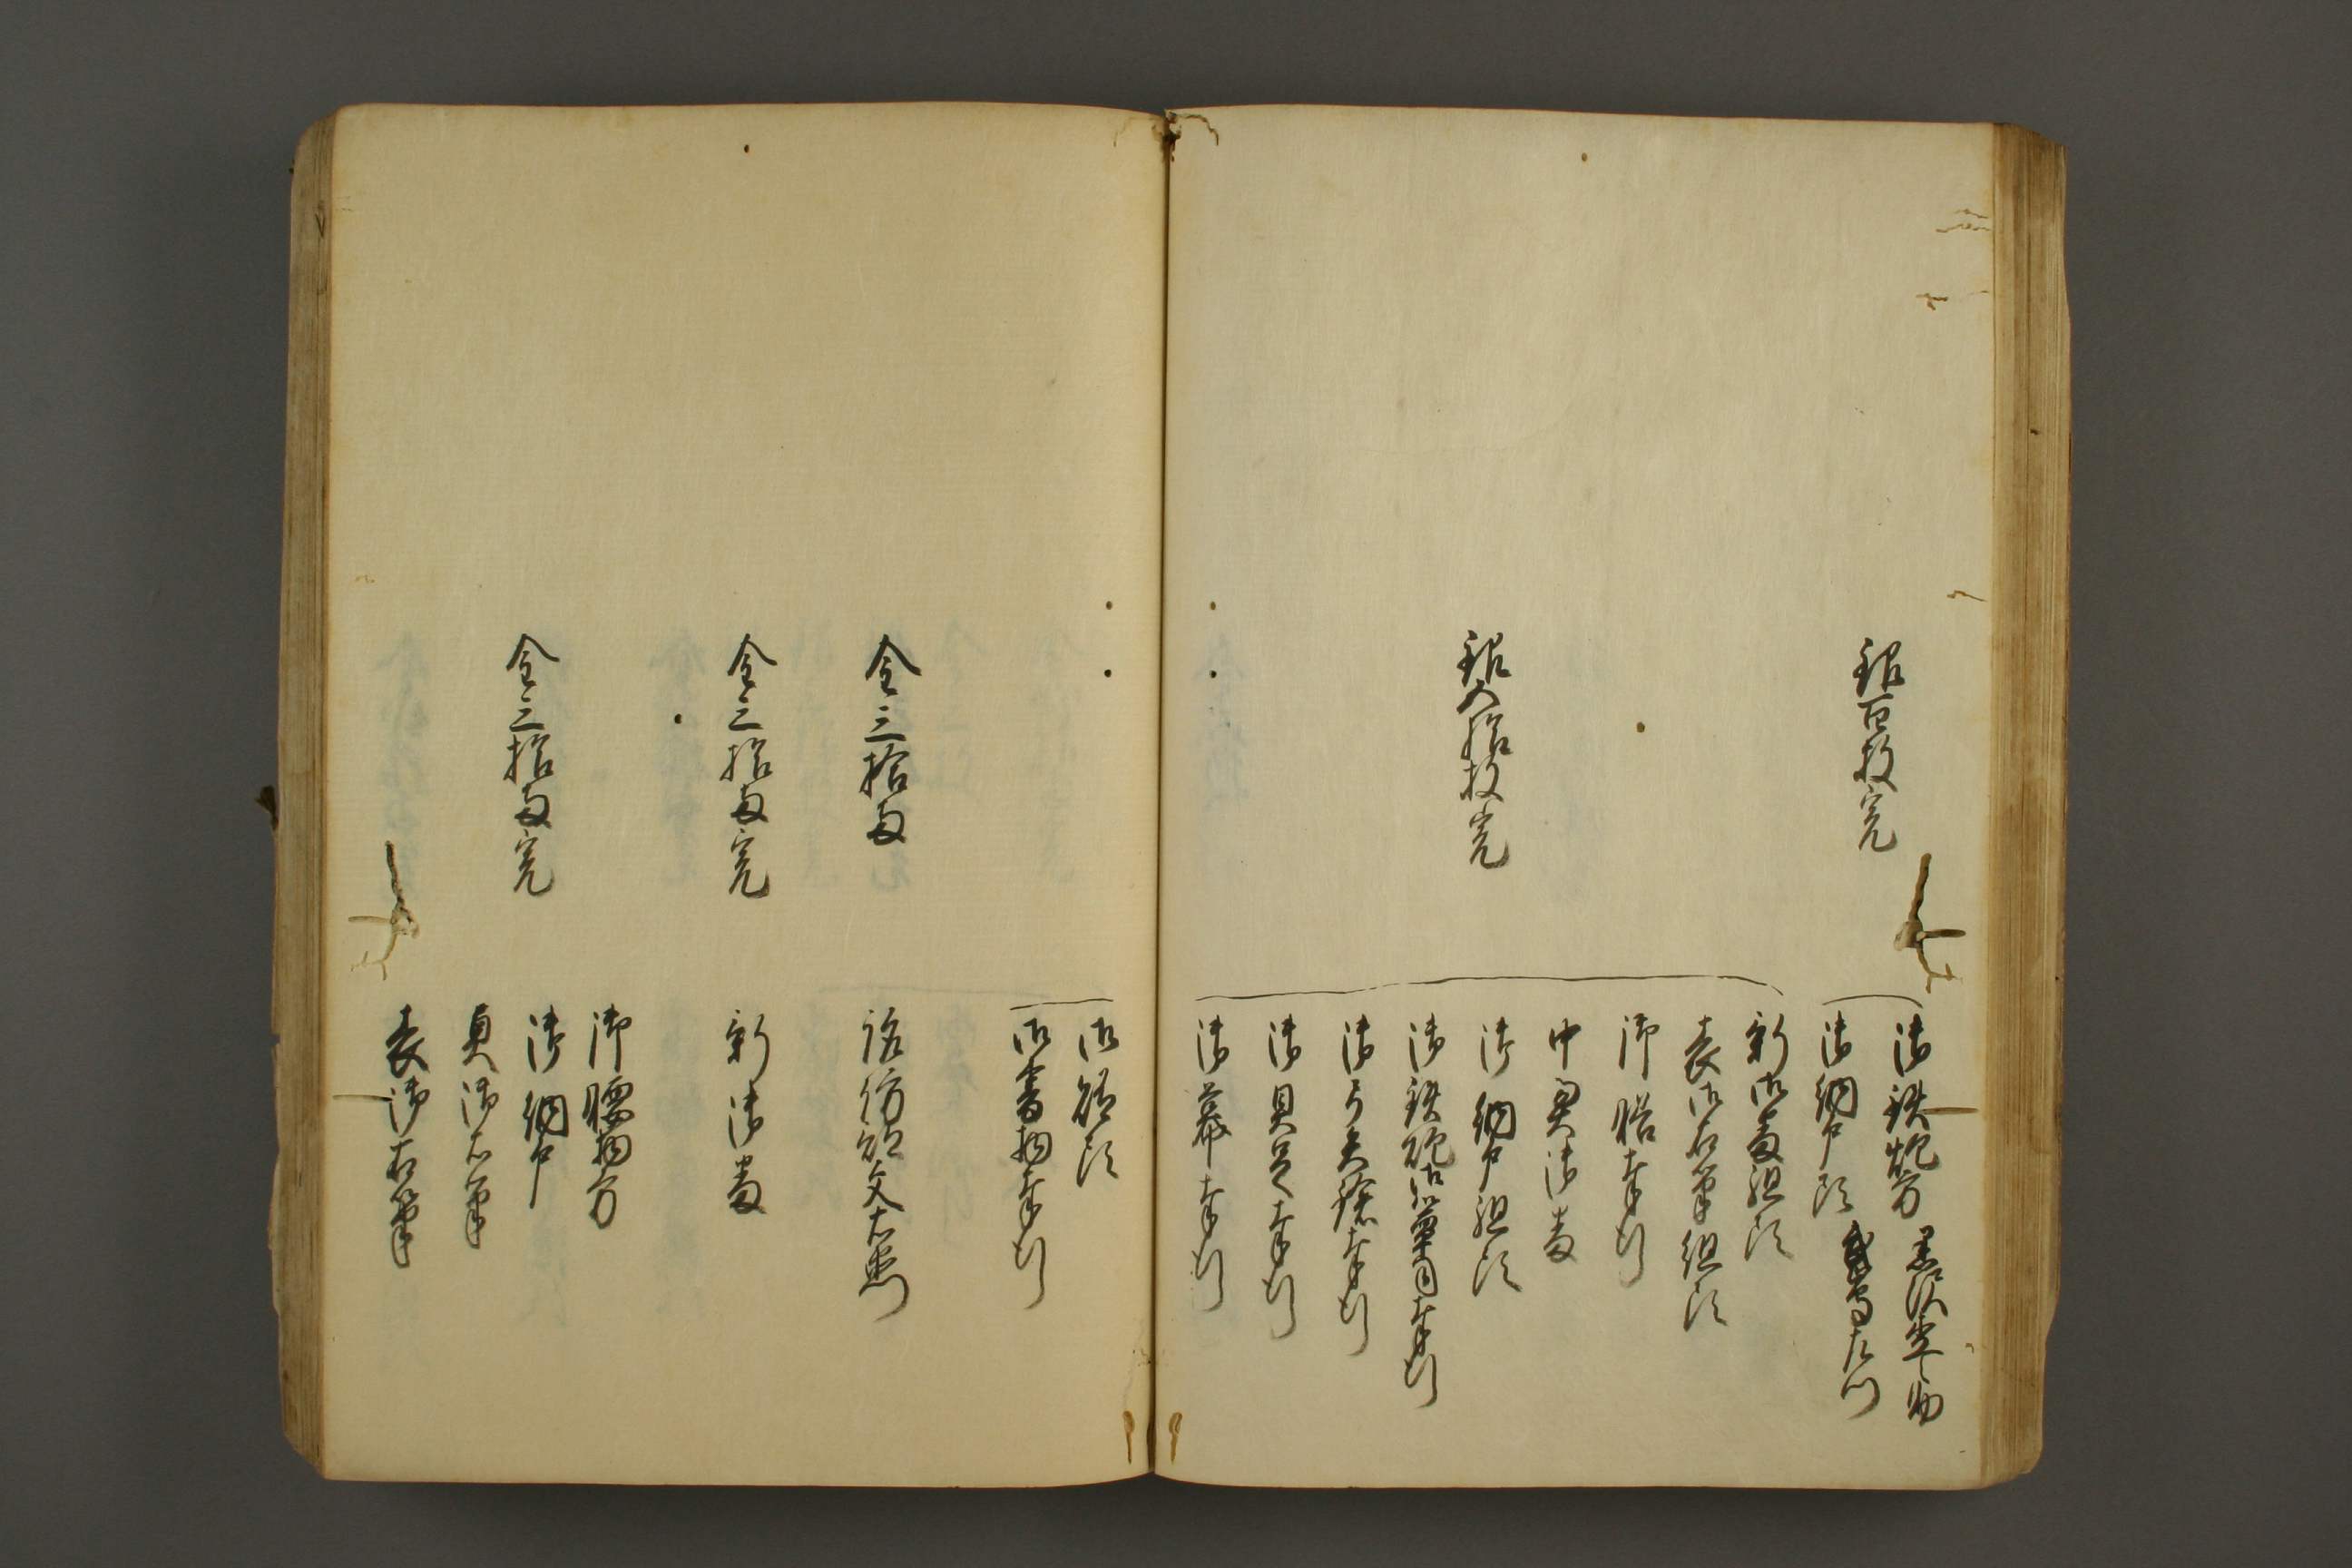 銀百枚宛
御鉄炮方
御納戸頭
銀五拾枚宛
新御番組頭
表御右筆組頭
御膳奉行
中奥御番
御納戸組頭
御鉄砲御薬同奉行
御弓矢鑓奉行
御具足奉行
御幕奉行
御賄頭
御書物奉行
金三拾両
金三拾両宛
新御番
金三拾両宛
御腰物方
御納戸
奥御右筆
表御右筆